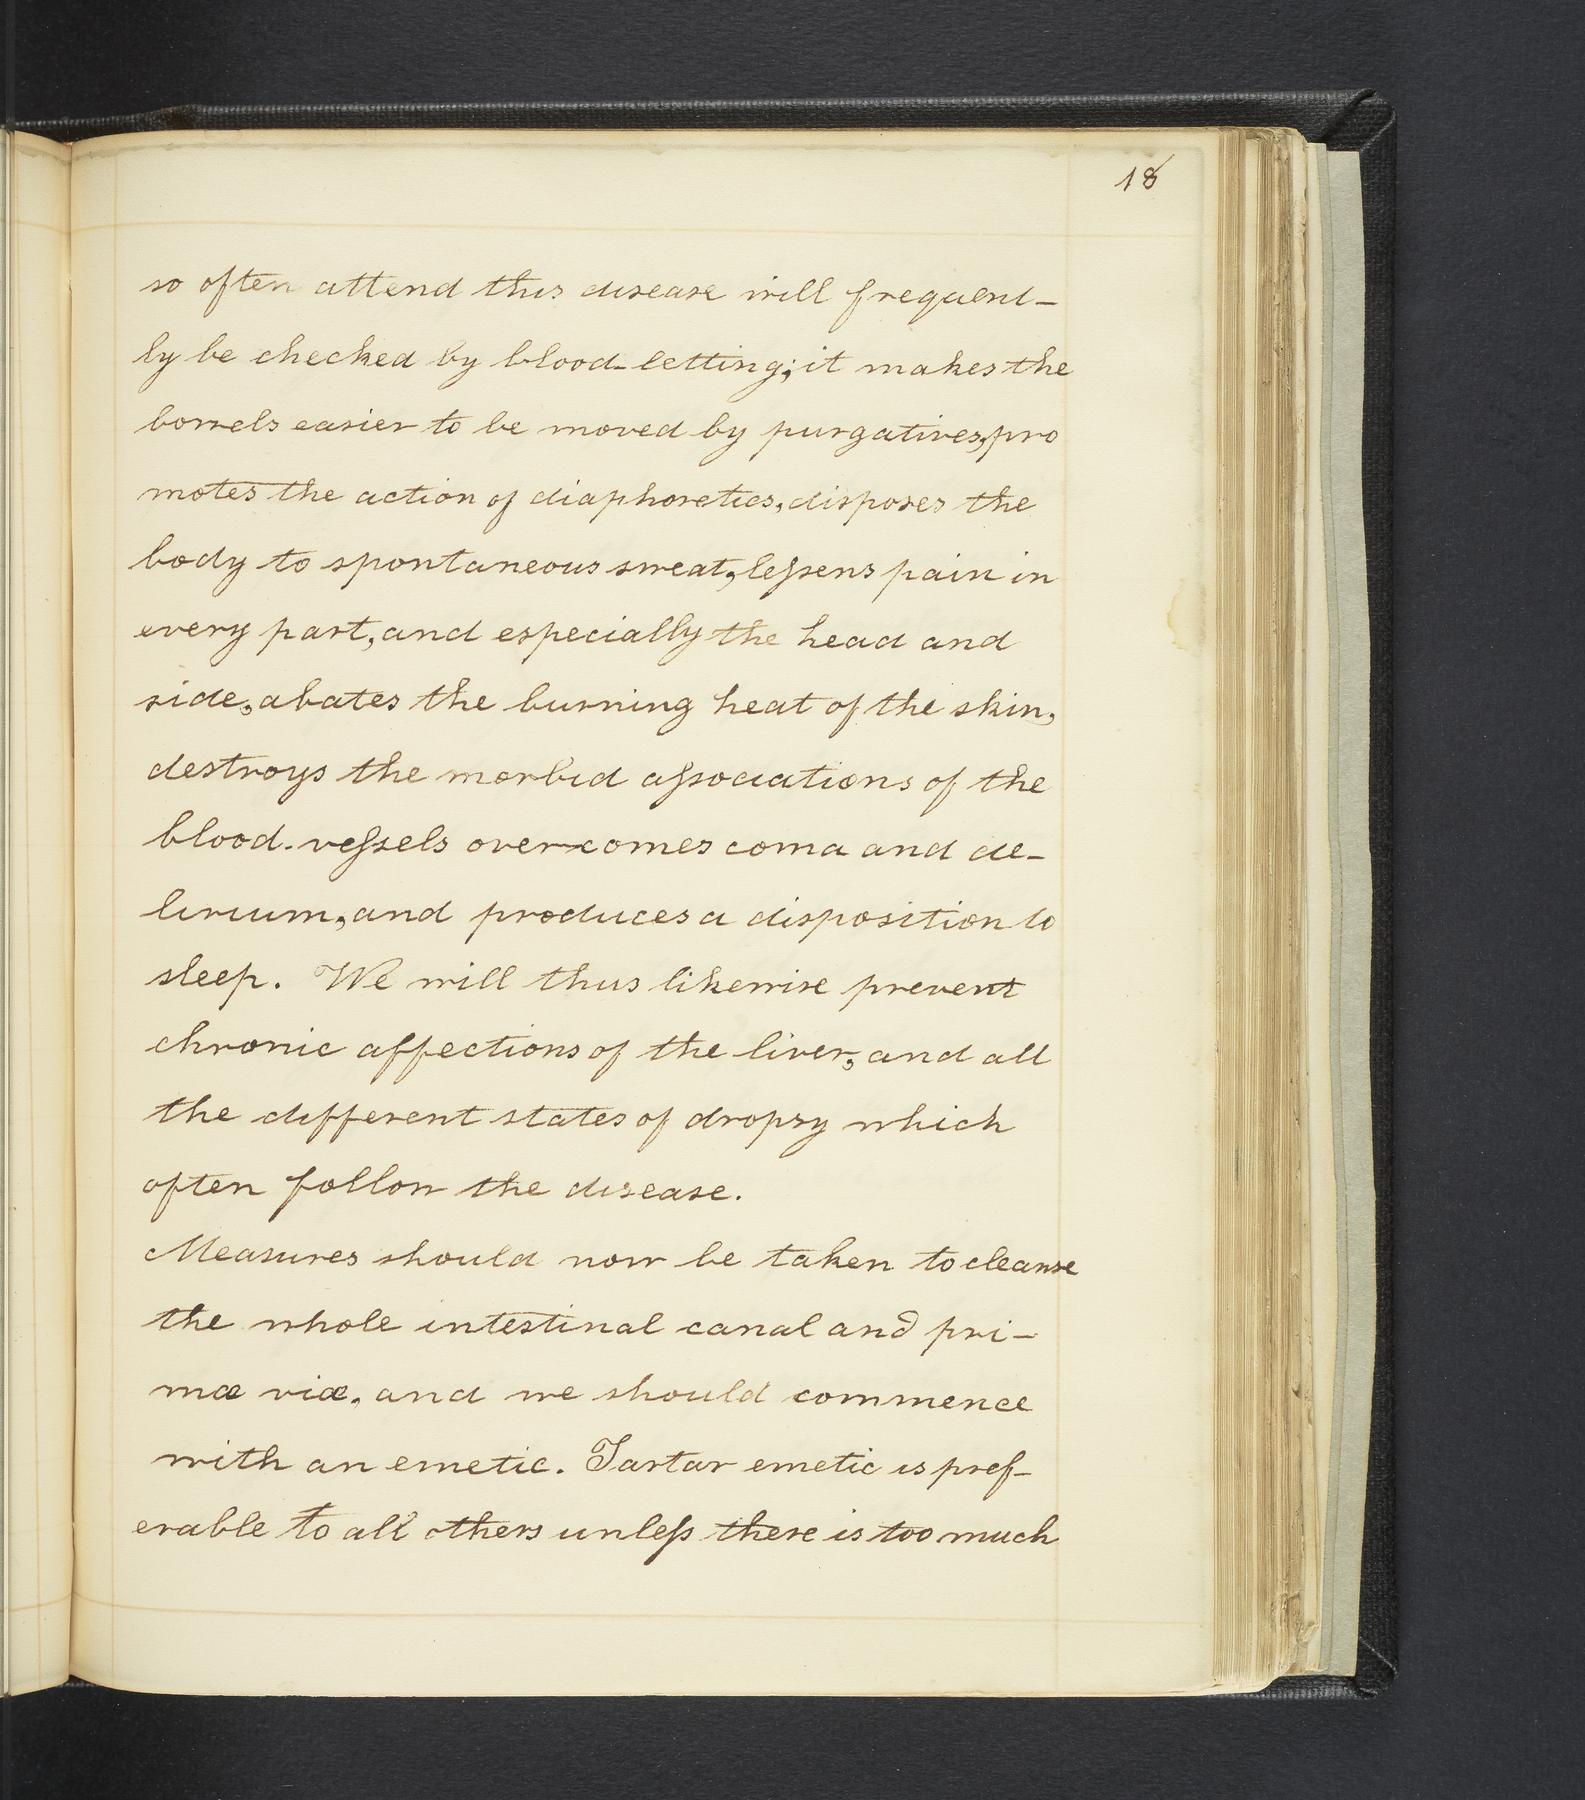 18
so often attend this disease will frequent-
ly be checked by blood-letting; it makes the
bowels easier to be moved by purgatives, pro
motes the action of diaphoretics, disposes the
body to spontaneous sweat, leſsens pain in
every part, and especially the head and
side, abates the burning heat of the skin,
destroys the morbid aſsociations of the
blood-veſsels overcomes coma and de-
lirium, and produces a disposition to
sleep. We will thus likewise prevent
chronic affections of the liver, and all
the different states of dropsy which
often follow the disease.
Measures should now be taken to cleanse
the whole intestinal canal and pri-
mæ viæ, and we should commence
with an emetic. Tartar emetic is pref-
erable to all others unleſs there is too much